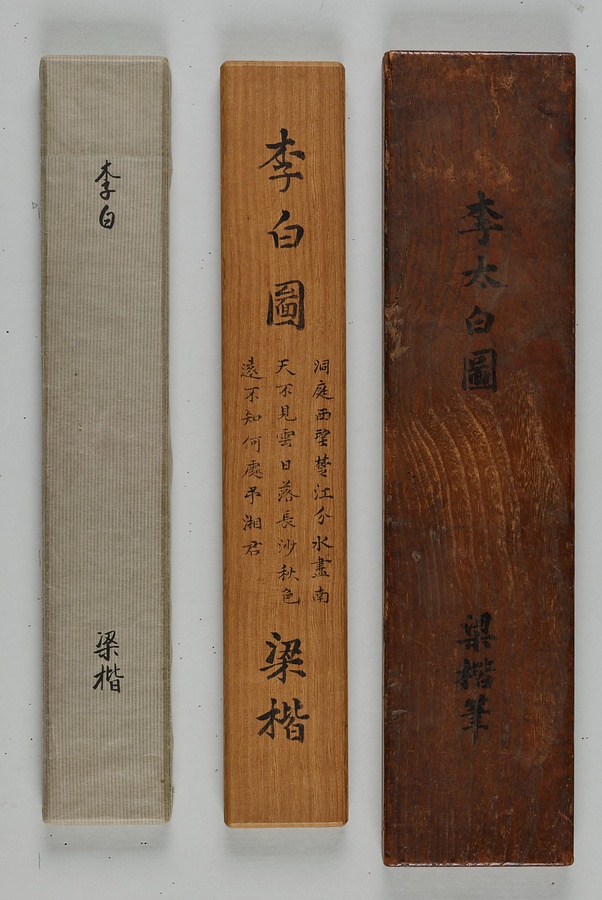 李白
梁楷
李白圖
洞庭西望楚江分水盡南
天不見雲日落長沙秋色
遠不知何處弔湘君
梁楷
李太白圖
梁楷筆